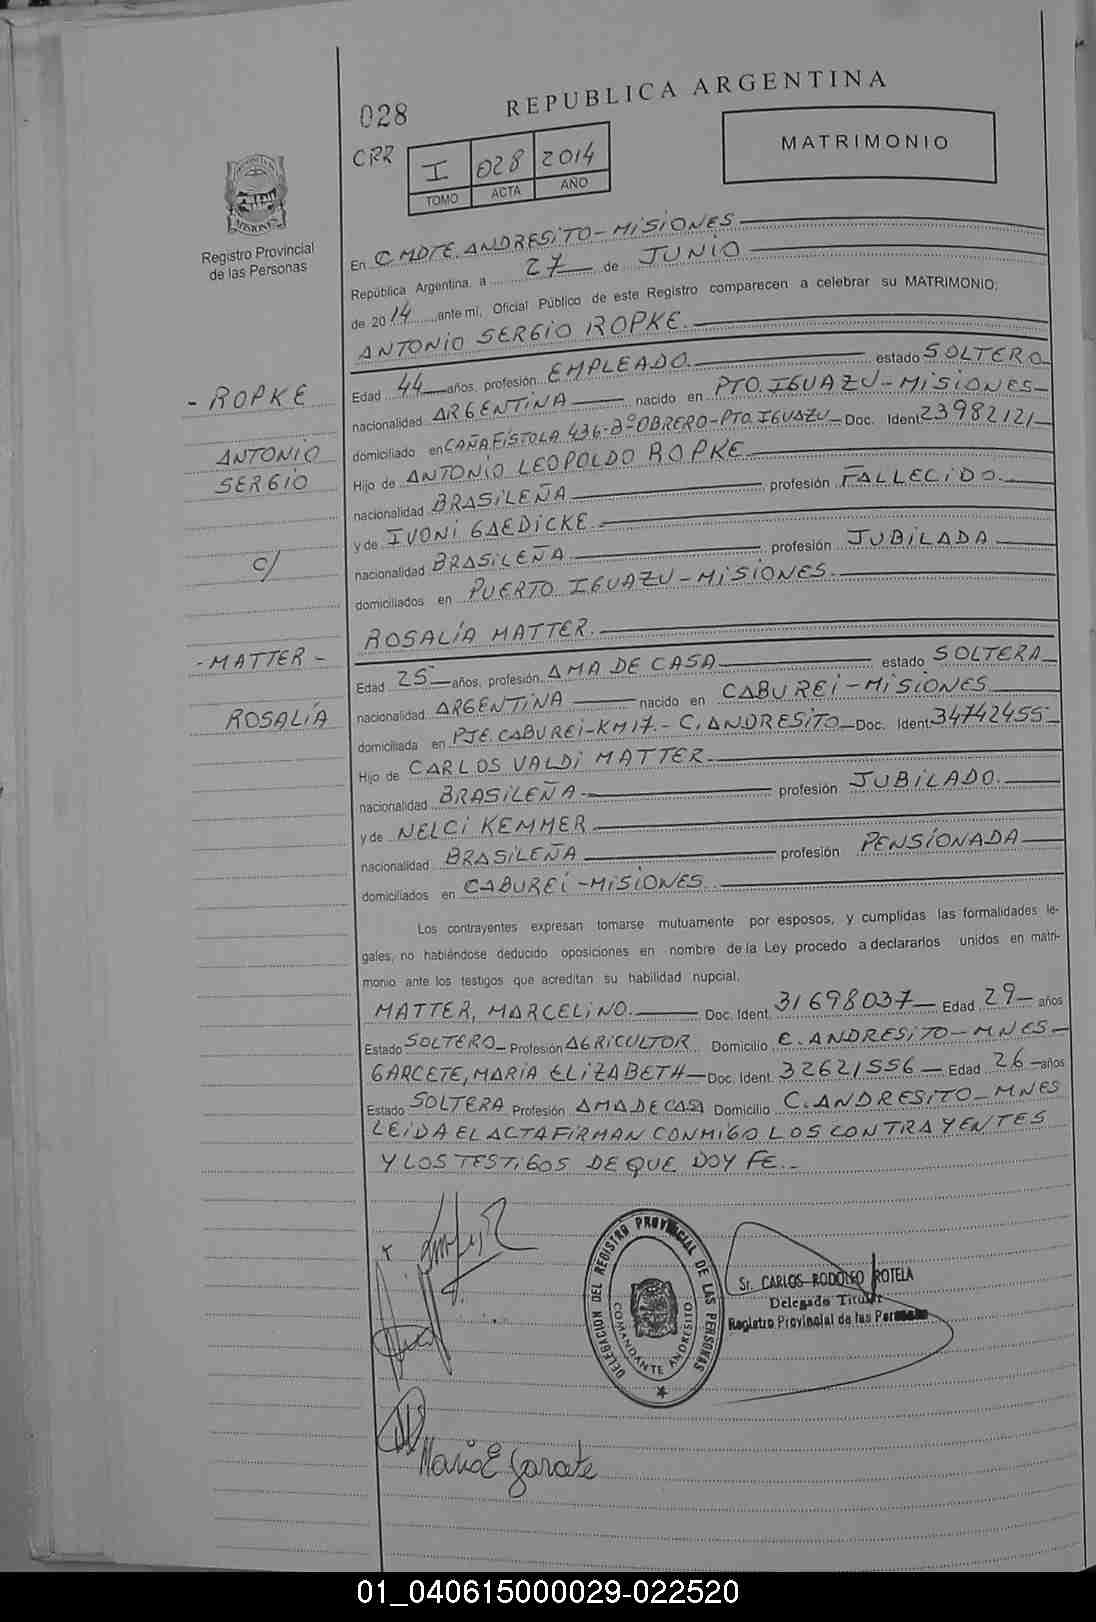 028
REPUBLICA ARGENTINA
CRR
I 028 2014
TOMO ACTA AÑO
MATRIMONIO
PROVINCIA DE MISIONES
Registro Provincial
de las Personas
En C. MDTE. ANDRESiTO - MiSiONES
República Argentina, a 27 de JUNiO
de 2014, ante mí, Oficial Público de este Registro comparecen a celebrar su MATRIMONIO;
ANTONiO SERGiO ROPKE.
Edad 44 años, profesión EMPLEADO. estado SOLTERO
- ROPKE
nacionalidad ARGENTiNA nacido en PTO. IGUAZU - MiSiONES -
domiciliado en CAÑAFÍSTOLA 436 - Bº OBRERO - PTO. IGUAZU - Doc. Ident. 23982121
ANTONiO
SERGiO
Hijo de ANTONiO LEOPOLDO ROPKE
nacionalidad BRASiLEÑA profesión FALLECiDO.
y de IVONi GAEDiCKE
c/
nacionalidad BRASiLEÑA profesión JUBiLADA
domiciliados en PUERTO IGUAZU - MiSiONES.
ROSALÍA MATTER.
- MATTER -
Edad 25 años, profesión AMA DE CASA estado SOLTERA
ROSALÍA
nacionalidad ARGENTiNA nacido en CABUREi - MiSiONES
domiciliada en PJE. CABUREi - KM 17 - C. ANDRESiTO - Doc. Ident. 34742455
Hijo de CARLOS VALDi MATTER
nacionalidad BRASiLEÑA profesión JUBiLADO.
y de NELCi KEMMER
nacionalidad BRASiLEÑA profesión PENSiONADA
domiciliados en CABUREi - MiSiONES.
Los contrayentes expresan tomarse mutuamente por esposos, y cumplidas las formalidades le-
gales, no habiéndose deducido oposiciones en nombre de la Ley procedo a declararlos unidos en matri-
monio ante los testigos que acreditan su habilidad nupcial.
MATTER, MARCELiNO. Doc. Ident. 31698037 Edad 29 años
Estado SOLTERO - Profesión AGRiCULTOR Domicilio C. ANDRESiTO - MNES -
GARCETE, MARÍA ELiZABETH - Doc. Ident. 32621556 - Edad 26 años
Estado SOLTERA Profesión AMA DE CASA Domicilio C. ANDRESiTO - MNES
LEiDA EL ACTA FiRMAN CONMiGO LOS CONTRAYENTES
Y LOS TESTiGOS DE QUE DOY FE.-
DELEGACION DEL REGISTRO PROVINCIAL DE LAS PERSONAS
COMANDANTE ANDRESITO
Sr. CARLOS RODOLFO ROTELA
Delegado Titular
Registro Provincial de las Personas
Maria E Garcete
01_040615000029-022520